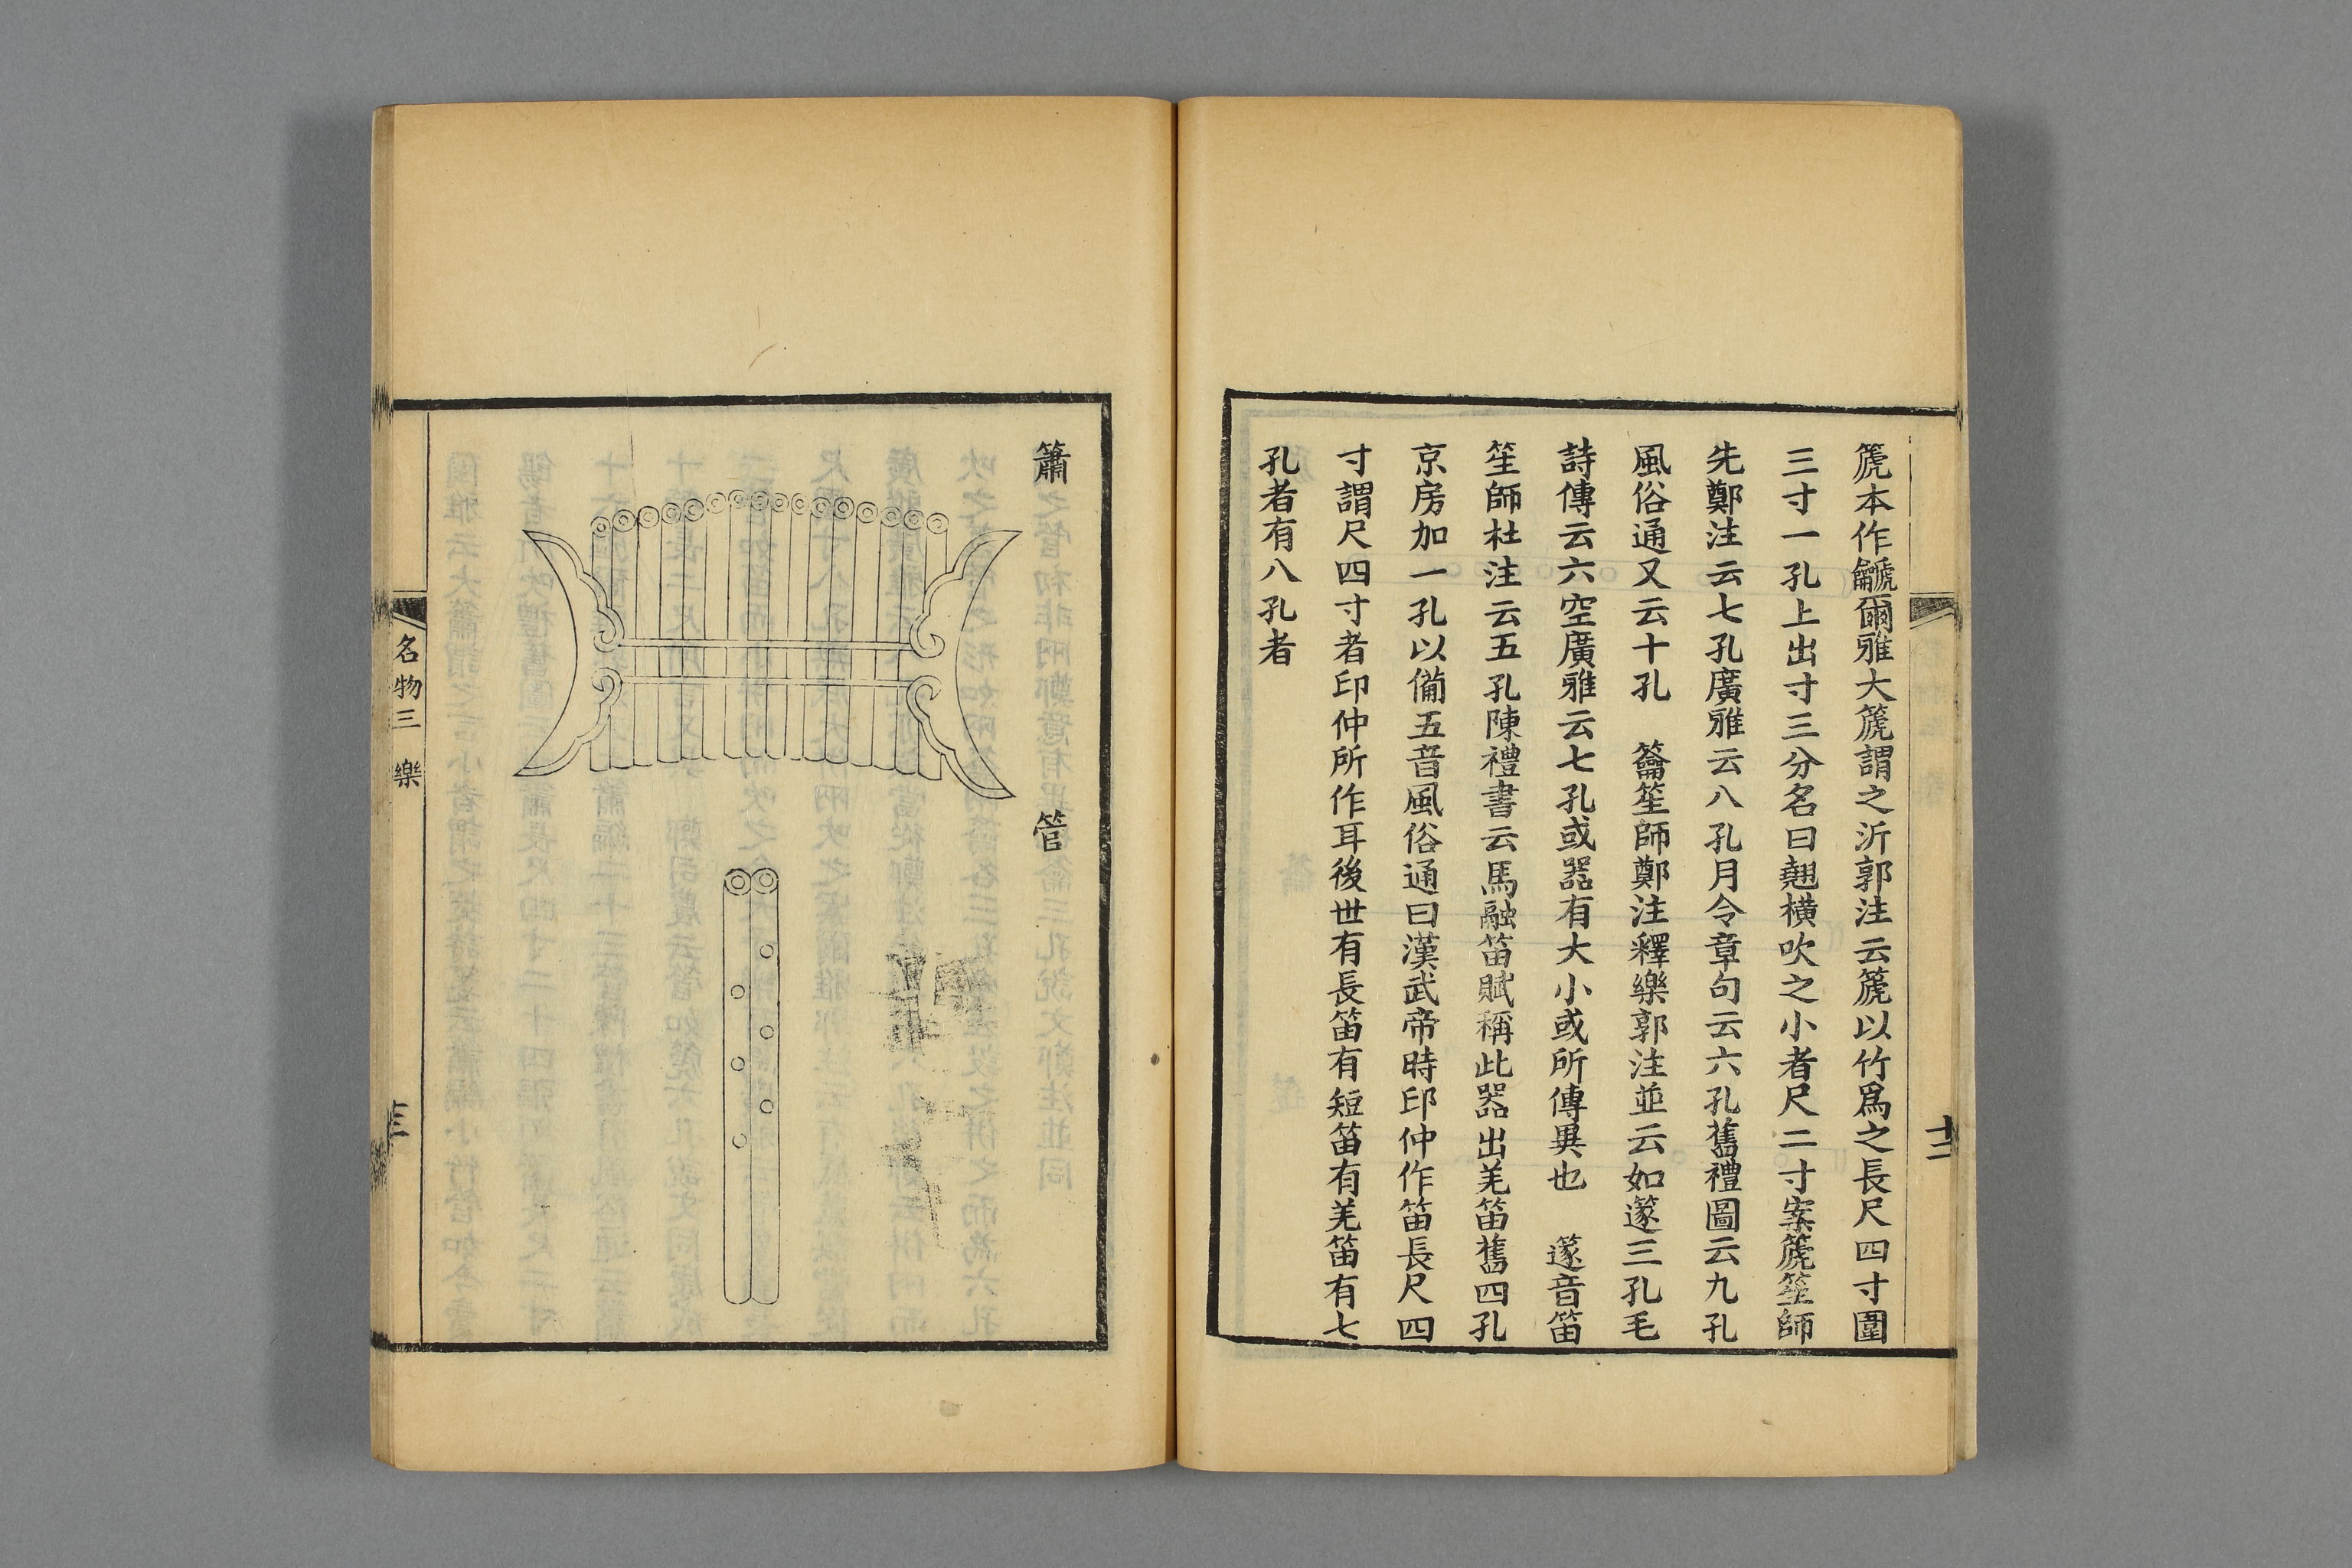 篪本作䶵爾雅大篪謂之沂郭注云篪以竹爲之長尺四寸圍
三寸一孔上出寸三分名曰翹橫吹之小者尺二寸案篪笙師
先鄭注云七孔廣雅云八孔月令章句云六孔舊禮圖云九孔
風俗通又云十孔　籥笙師鄭注釋樂郭注並云如篴三孔毛
詩傳云六空廣雅云七孔或器有大小或所傳異也　篴音笛
笙師杜注云五孔陳禮書云馬融笛賦稱此器出羌笛舊四孔
京房加一孔以備五音風俗通曰漢武帝時卬仲作笛長尺四
寸謂尺四寸者卬仲所作耳後世有長笛有短笛有羌笛有七
孔者有八孔者
十二
簫
管
名物三　樂
十三